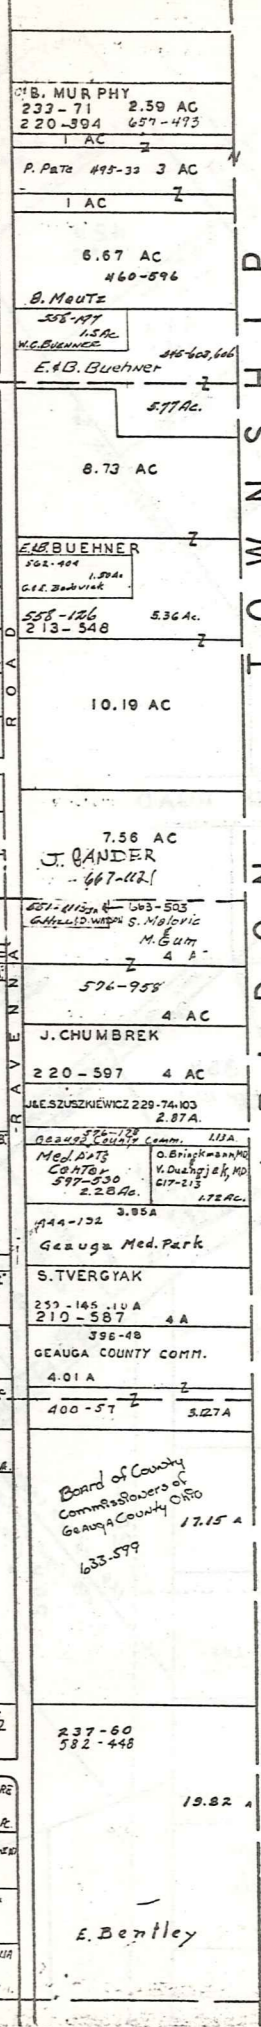 B. MURPHY
233-71 2.59 AC
220-394 657-493
1 AC
Z
P. Pate 495-33 3 AC
Z
1 AC
6.67 AC
460-596
B. Mautz
558-197
1.5 Ac.
W.C. BUEHNER
E. & B. Buehner
Z
5.77 Ac.
8.73 AC
Z
E.&B. BUEHNER
562-404
1.50 Ac
558-126 5.36 Ac.
213-548
Z
10.19 AC
7.56 AC
J. GANDER
667-1121
663-503
S. Malovic
M. Gum
4 A
Z
576-958
4 AC
J. CHUMBREK
220-597 4 AC
J&E. SZUSZKIEWICZ 229-74-103
2.87 A.
Geauga County Comm. 1.13 A
Med Arts
Center
597-530
2.28 Ac.
O. Brinckmann, MD
V. Duengjek, MD
617-213
1.72 Ac.
3.85 A
444-192
Geauga Med. Park
S. TVERGYAK
210-587 4 A
396-48
GEAUGA COUNTY COMM.
4.01 A
Z
400-57 Z 3.127 A
Board of County
Commissioners of
Geauga County Ohio
17.15 A
633-599
237-60
582-448
19.82 A
E. Bentley
RAVENNA ROAD
TOWNSHIP